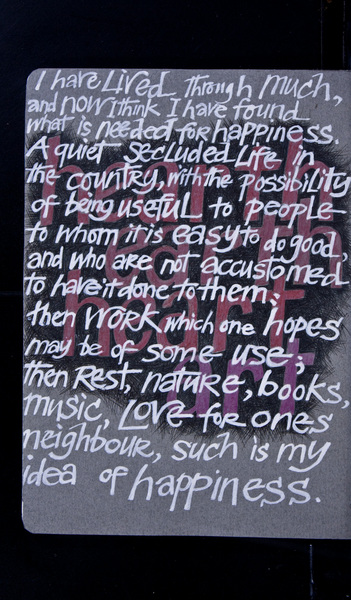 I have Lived through much,
and now i think I have found
what is needed for happiness.
A quiet secluded Life in
the country, with the possibility
of being useful to people
to whom it is easy to do good,
and who are not accustomed
to have it done to them;
then work which one hopes
may be of some use;
then Rest, nature, books,
music, Love for ones
neighbour, such is my
idea of happiness.
heart
art